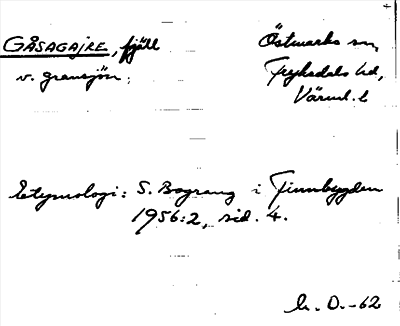 GÅSAGAJRE, fjäll
v. gransjön.
Östmarks sn,
Fryksdals hd,
Värml. l
Etymologi: S. Bograng i Finnbygden
1956:2, sid. 4.
h. O. -62